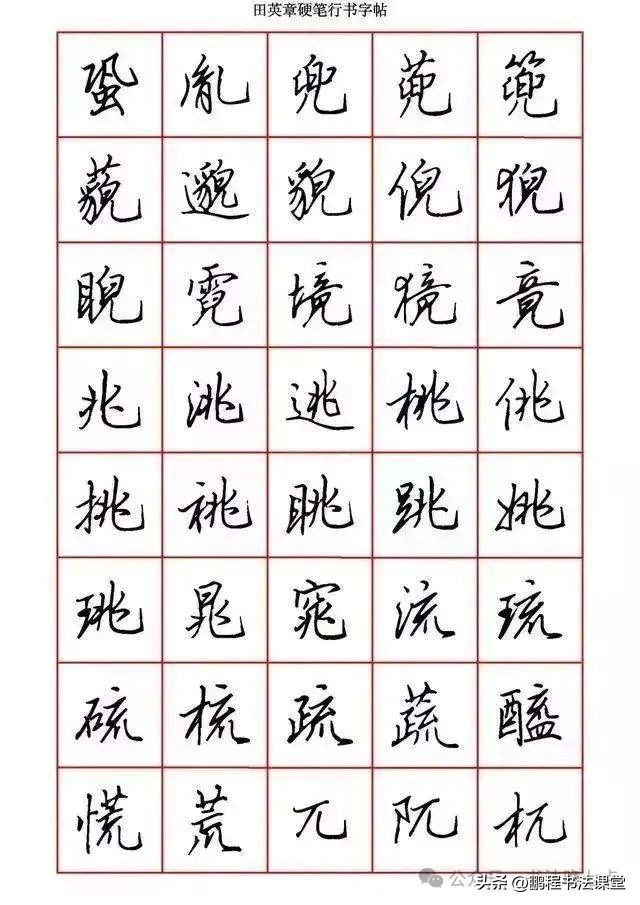 田英章硬笔行书字帖
蛩 胤 兜 蔸 篼
藐 邈 貌 倪 猊
睨 霓 境 獍 竟
兆 洮 逃 桃 佻
挑 祧 眺 跳 姚
珧 晁 窕 流 琉
硫 梳 疏 蔬 醯
慌 荒 兀 阢 杌
头条 @鹏程书法课堂